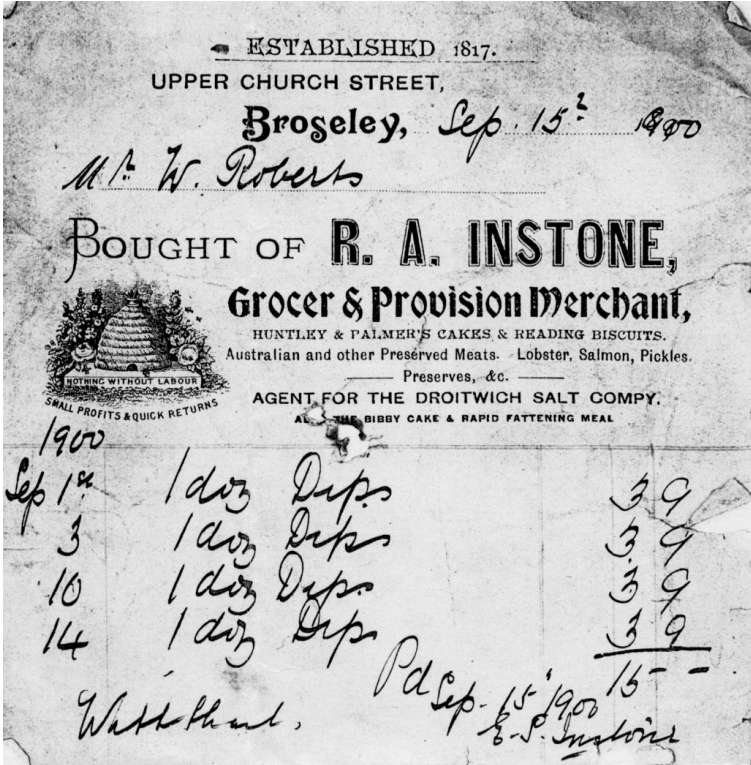 ESTABLISHED 1817.
UPPER CHURCH STREET,
Broseley, Sep. 15 1900
Mr W. Roberts
BOUGHT OF R. A. INSTONE,
Grocer & Provision Merchant,
HUNTLEY & PALMER'S CAKES & READING BISCUITS.
Australian and other Preserved Meats. Lobster, Salmon, Pickles.
Preserves, &c.
AGENT FOR THE DROITWICH SALT COMPY.
THE BIBBY CAKE & RAPID FATTENING MEAL
NOTHING WITHOUT LABOUR
SMALL PROFITS & QUICK RETURNS
1900
Sep 1st 1 doz Dips 3 9
3 1 doz Dips 3 9
10 1 doz Dips 3 9
14 1 doz Dips 3 9
15 - -
Pd Sep. 15 1900
With thanks.
E. S. Instone